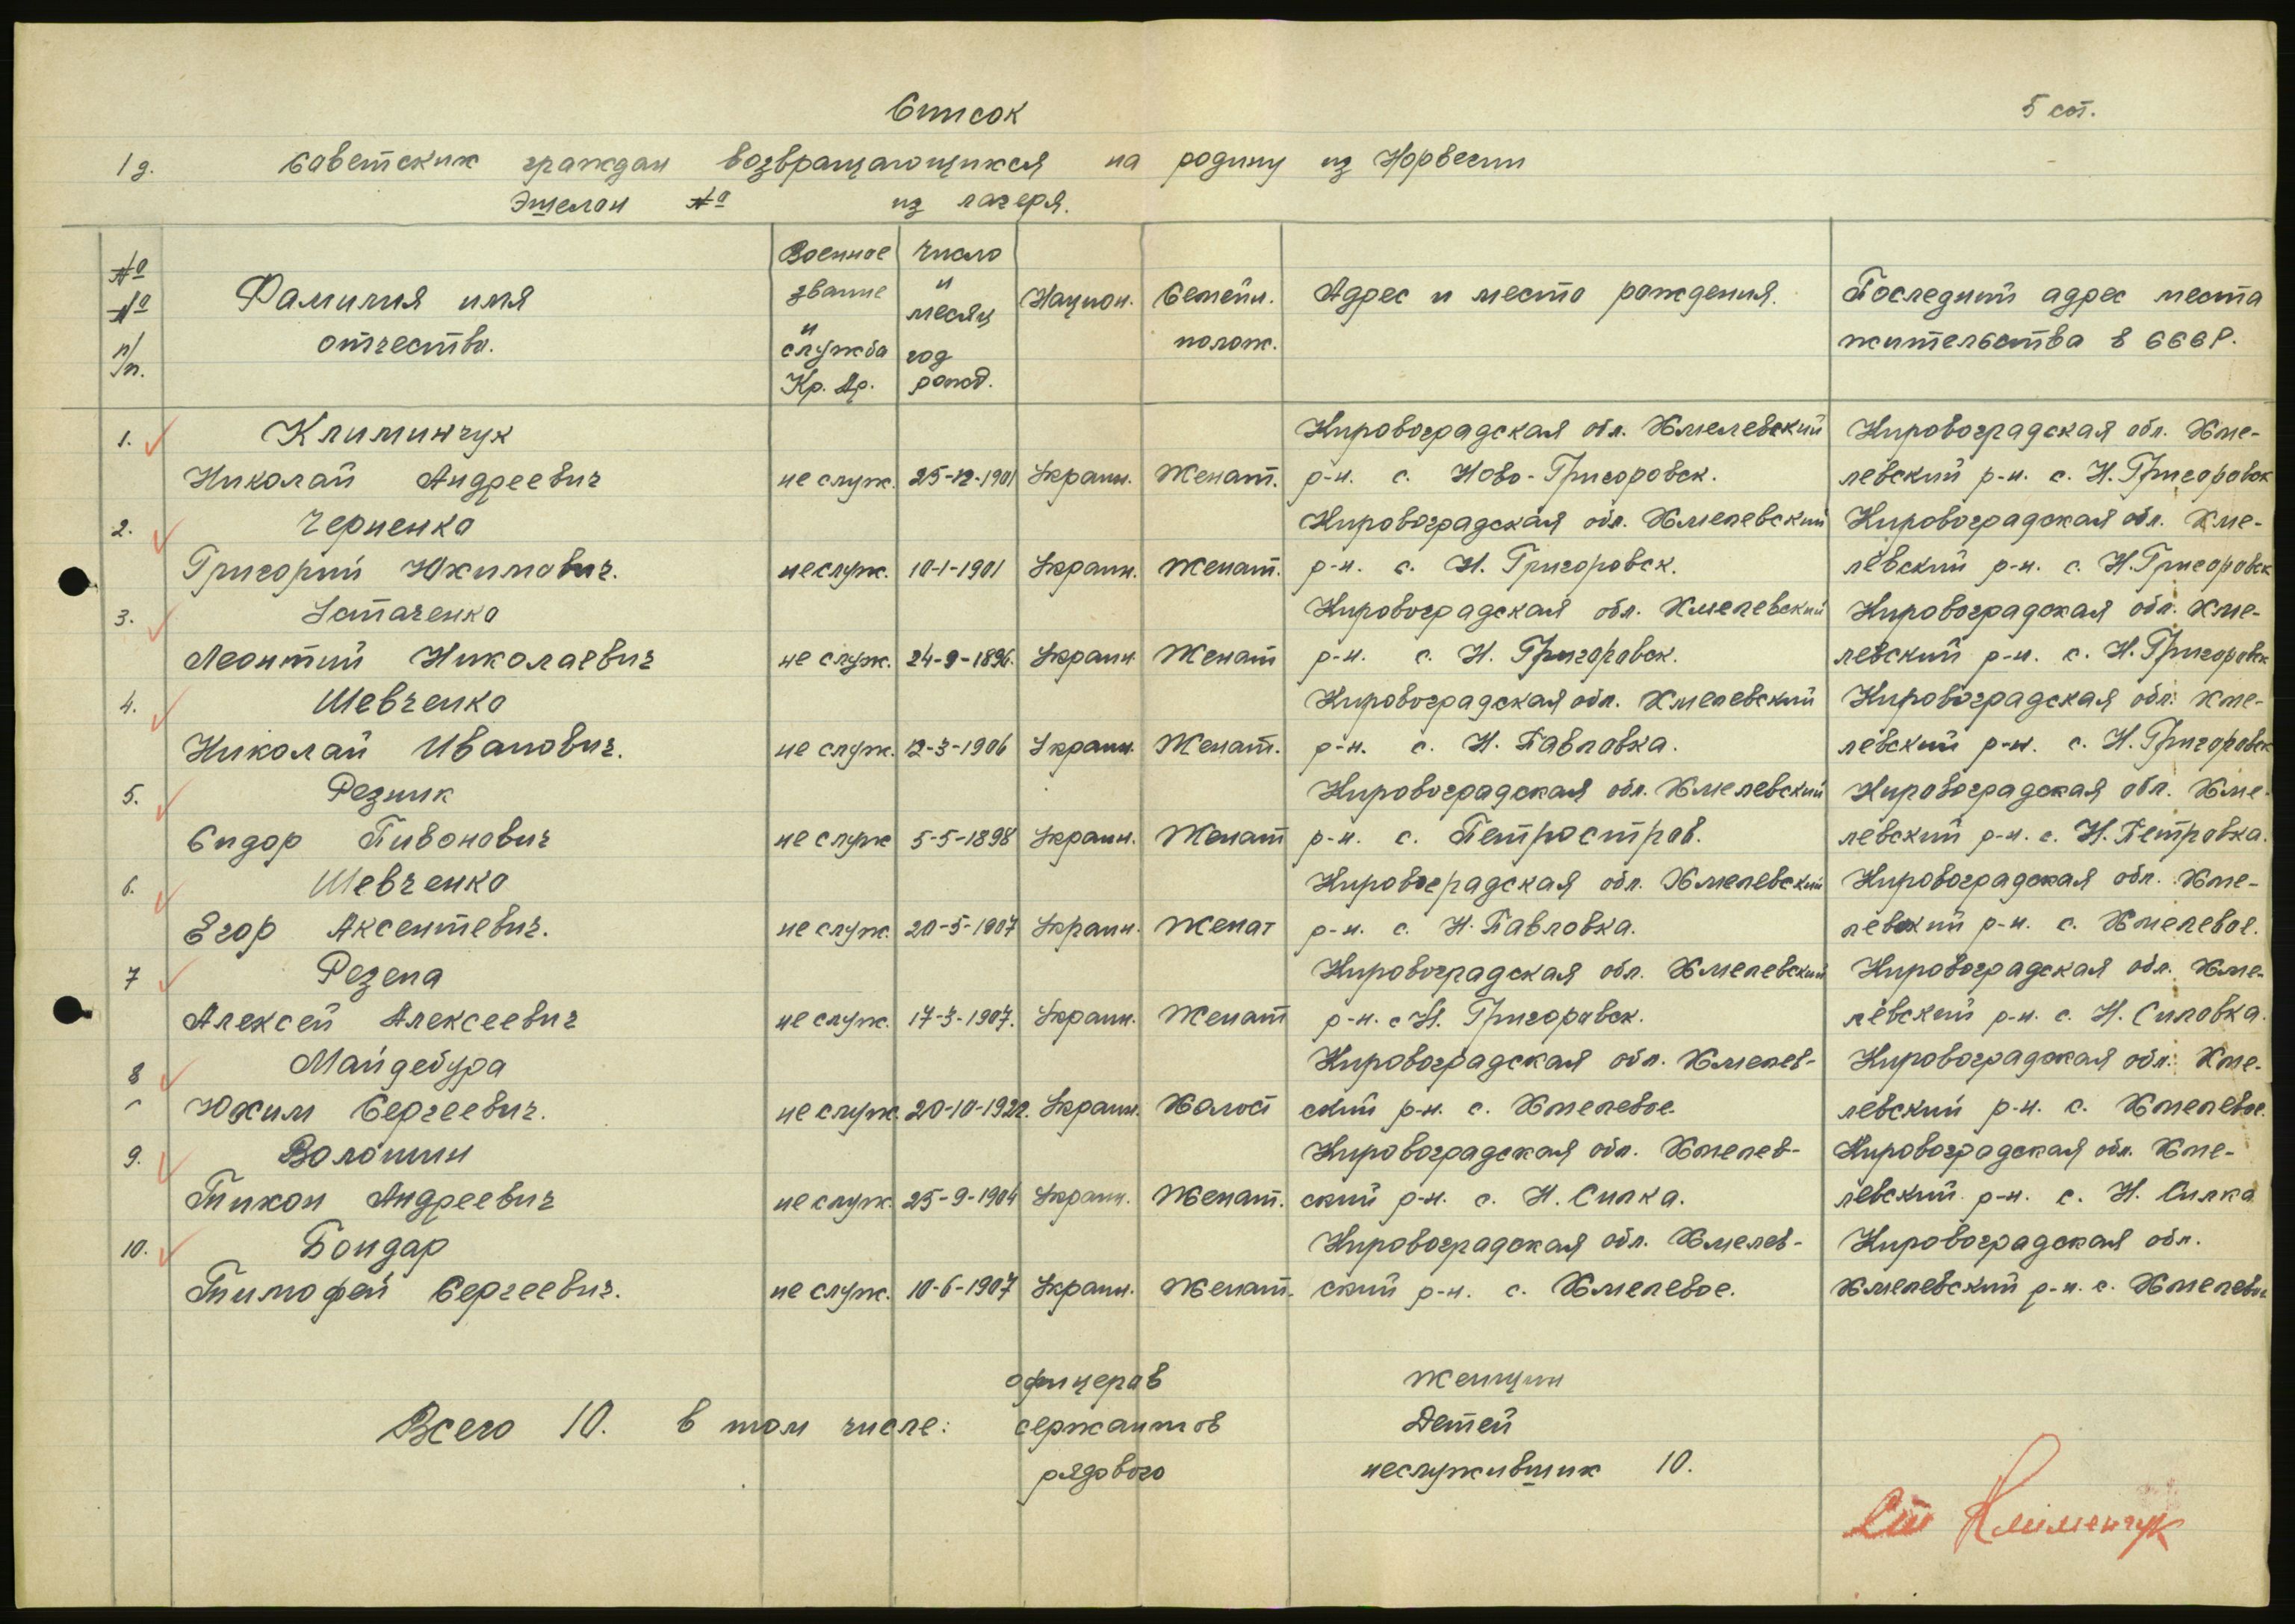 Список
5 сот.
1 д. Советских граждан возвращающихся на родину из Норвегии
Эшелон № из лагеря.
№ № п/п. Фамилия имя отчество. Военное звание и служба Кр. Ар. Число и месяц год рожд. Национ. Семейн. полож. Адрес и место рождения. Последний адрес места жительства в СССР.
1. Климинчук Кировоградская обл. Хмелевский Кировоградская обл. Хме-
Николай Андреевич не служ. 25-12-1901 Украин. Женат. р-н. с. Ново-Григоровск. левский р-н. с. Н. Григоровск
2. Черненко Кировоградская обл. Хмелевский Кировоградская обл. Хме-
Григорий Юхимович. не служ. 10-1-1901 Украин. Женат. р-н. с. Н. Григоровск. левский р-н. с. Н. Григоровск
3. Устаченко Кировоградская обл. Хмелевский Кировоградская обл. Хме-
Леонтий Николаевич не служ. 24-9-1896. Украин Женат р-н. с. Н. Григоровск. левский р-н. с. Н. Григоровск
4. Шевченко Кировоградская обл. Хмелевский Кировоградская обл. Хме-
Николай Иванович. не служ. 12-3-1906 Украин. Женат. р-н. с. Н. Павловка. левский р-н. с. Н. Григоровск
5. Резник Кировоградская обл. Хмелевский Кировоградская обл. Хме-
Сидор Пивонович не служ 5-5-1898 Украин. Женат р-н. с. Петростров. левский р-н. с. Н. Петровка.
6. Шевченко Кировоградская обл. Хмелевский Кировоградская обл. Хме-
Егор Аксентевич. не служ. 20-5-1907 Украин. Женат р-н. с. Н. Павловка. левский р-н. с. Хмелевое.
7 Резепа Кировоградская обл. Хмелевский Кировоградская обл. Хме-
Алексей Алексеевич не служ. 17-3-1907. Украин. Женат р-н. с Н. Григоровск. левский р-н. с. Н. Силовка.
8 Майдебура Кировоградская обл. Хмелев- Кировоградская обл. Хме-
Юхим Сергеевич. не служ. 20-10-1922. Украин. Холост ский р-н. с. Хмелевое. левский р-н. с. Хмелевое.
9. Волошин Кировоградская обл. Хмелев- Кировоградская обл. Хме-
Тихон Андреевич не служ. 25-9-1904 Украин. Женат. ский р-н. с. Н. Силка. левский р-н. с. Н. Силка
10. Бондар Кировоградская обл. Хмелев- Кировоградская обл.
Тимофей Сергеевич. не служ. 10-6-1907 Украин. Женат. ский р-н. с. Хмелевое. Хмелевский р-н. с. Хмелевое
офицеров женщин
Всего 10. в том числе: сержантов Детей
рядового неслуживших 10.
Ст Клименчук